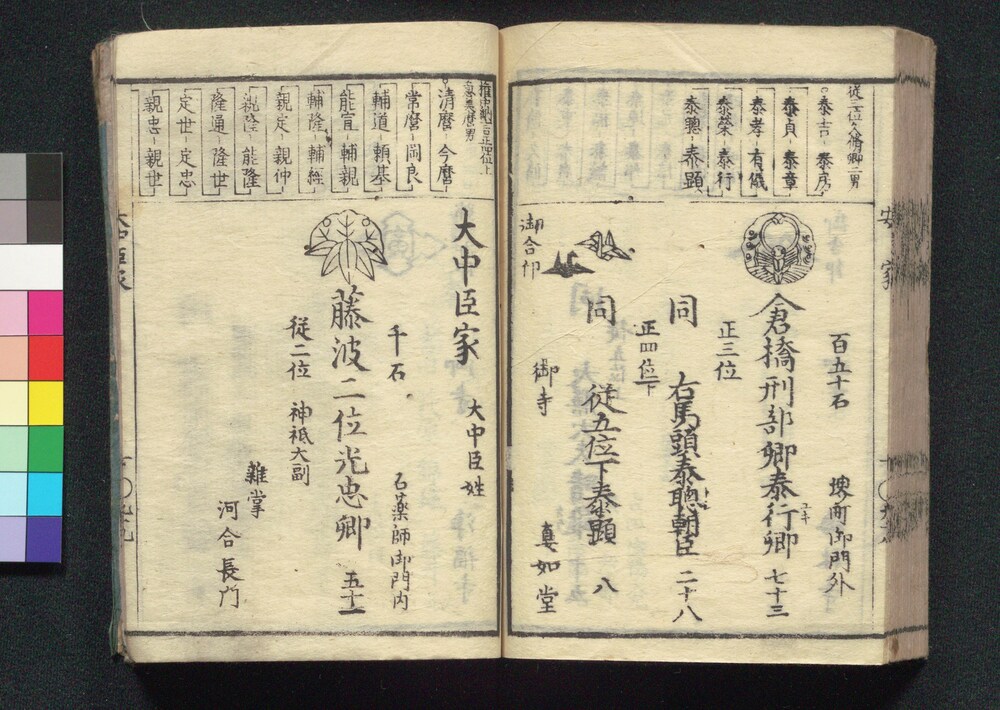 従三位久脩卿二男
泰吉 泰房
泰貞 泰章
泰孝 有儀
泰榮 泰行
泰聰 泰顕
百五十石 堺町御門外
倉橋刑部卿泰行卿 七十三
ユキ
正三位
同 右馬頭泰聰朝臣 二十八
正四位下
同 従五位下泰顕 八
御寺 真如堂
御合印
権中納言正四位上
意美麿男
清麿 今麿
常麿 岡良
輔道 頼基
能宣 輔親
輔隆 輔経
親定 親仲
親隆 能隆
隆通 隆世
定世 定忠
親忠 親世
大中臣家 大中臣姓
千石 石薬師御門内
藤波二位光忠卿 五十一
従二位 神祇大副
雜掌
河合長門